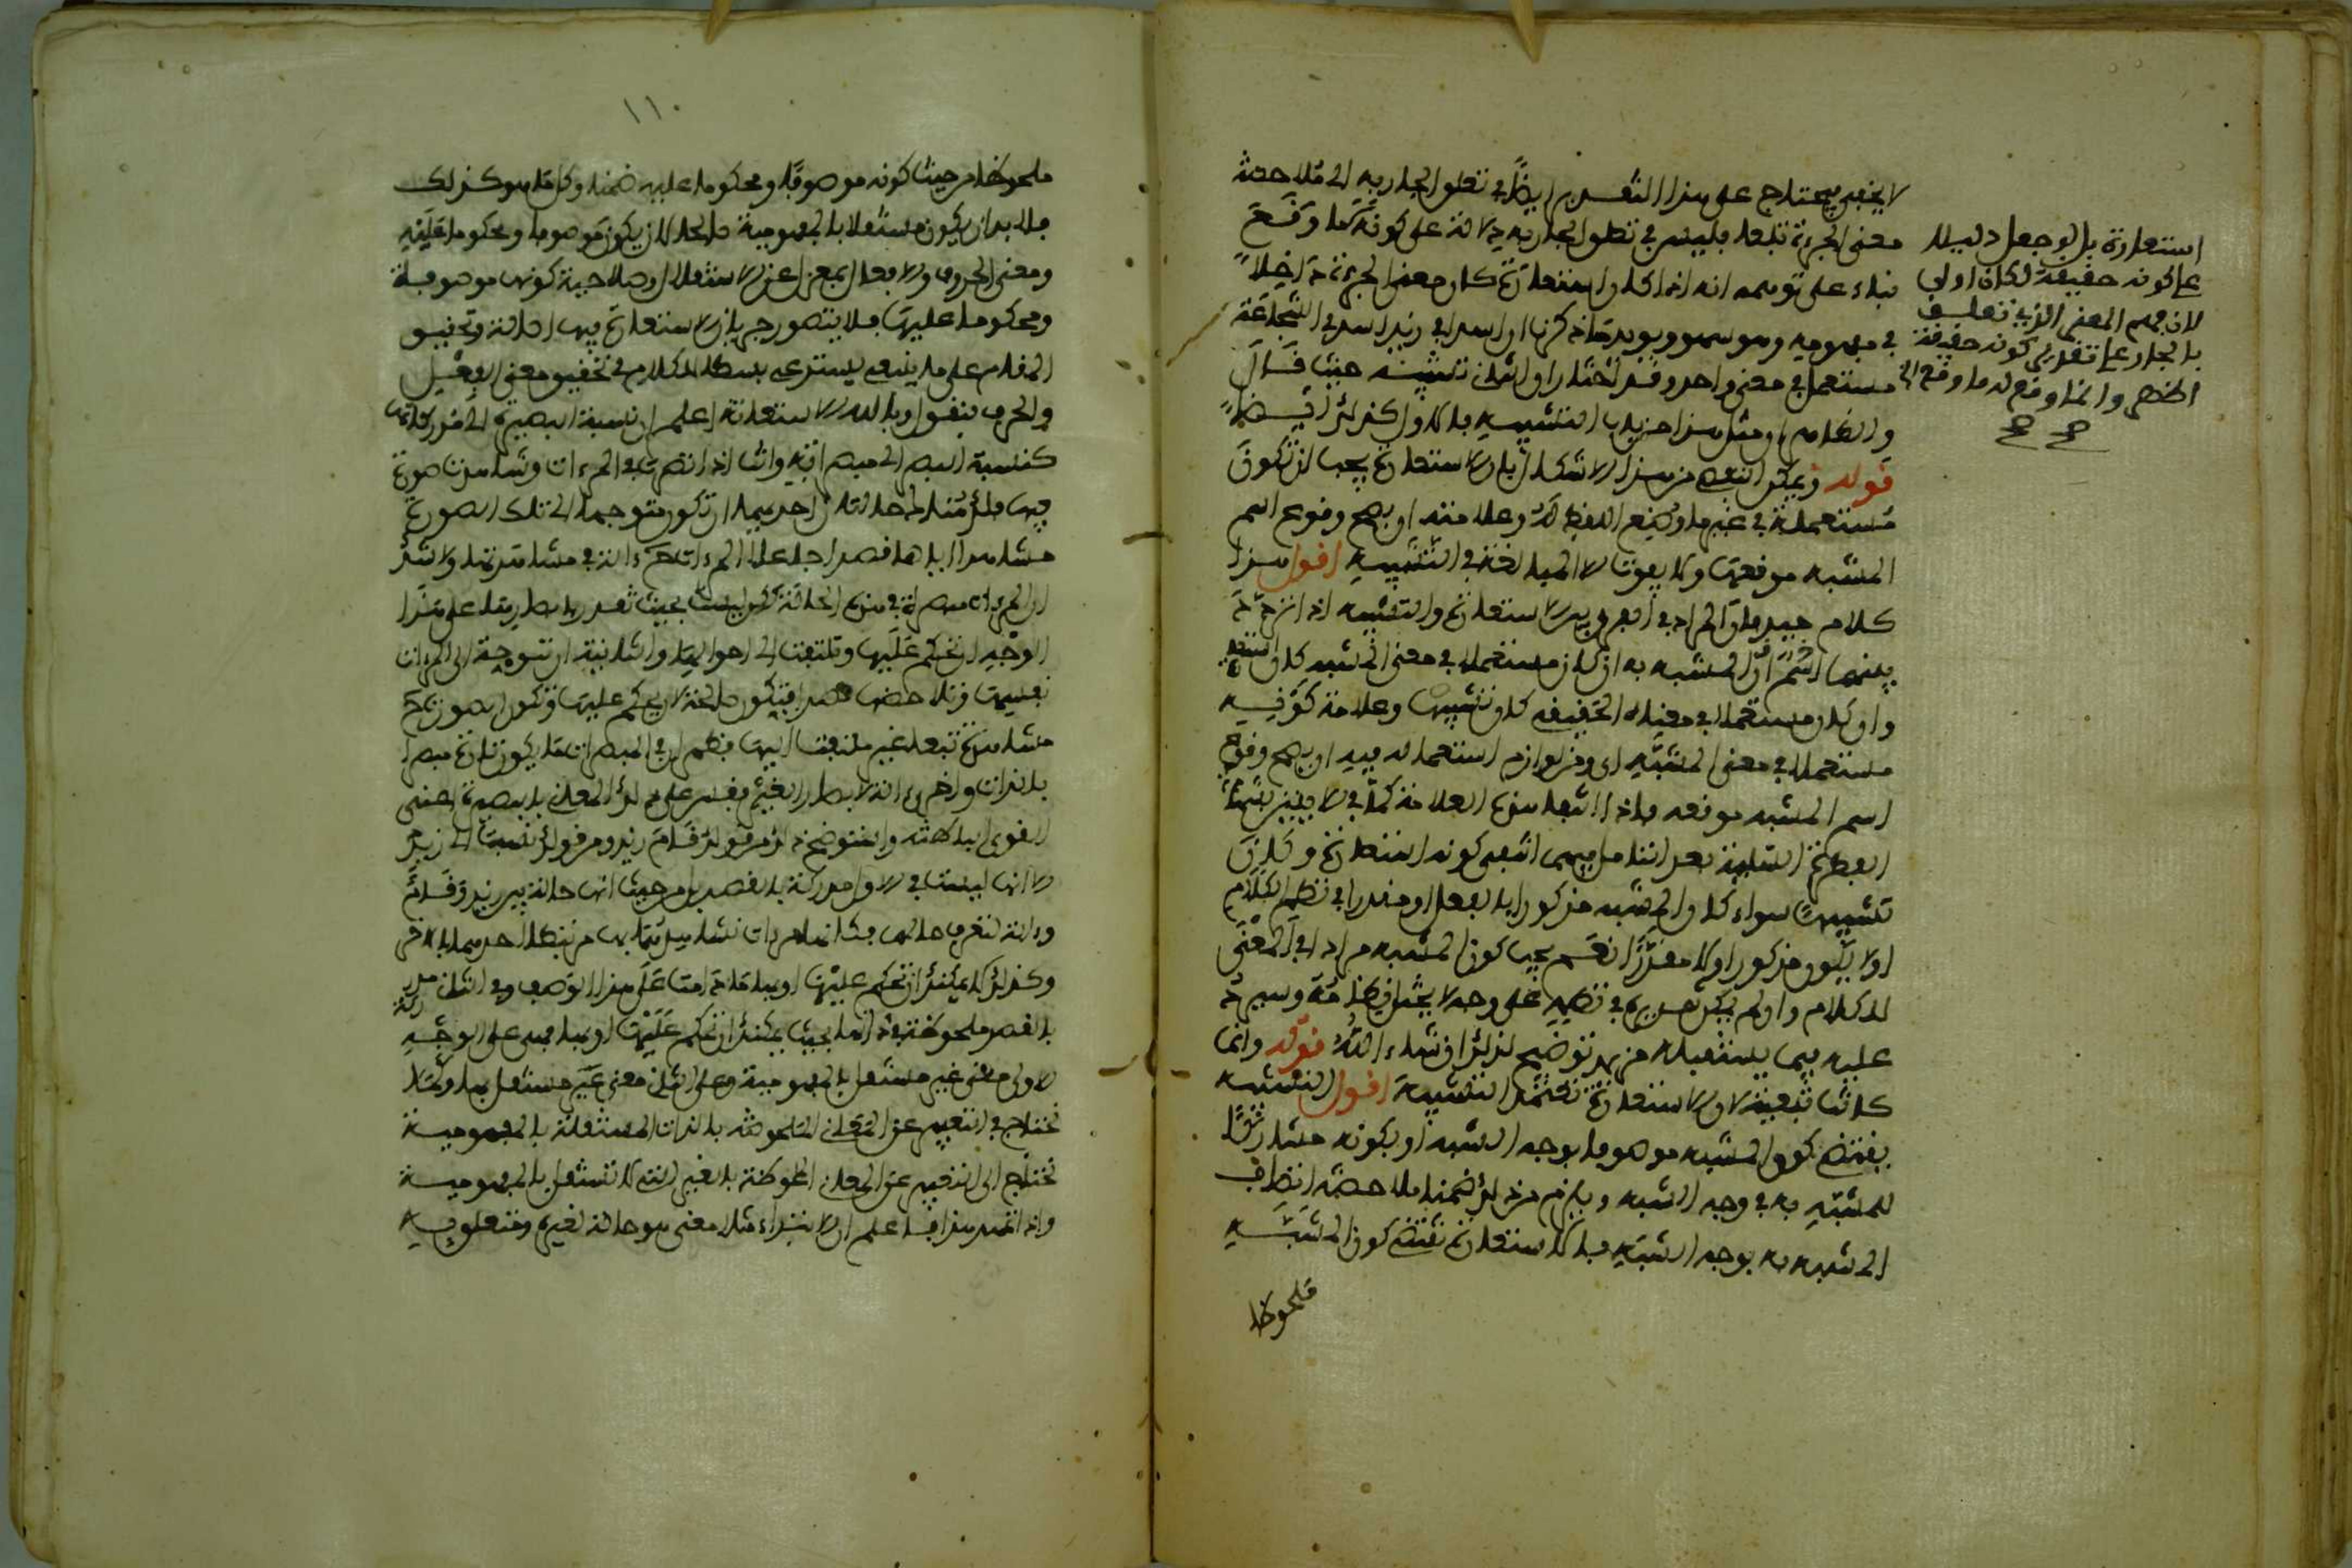 لا يخفى فيحتاج على هذا التقدير ايضا في تعلق الجار به الى ملاحظة
معنى الجرءة تبعا فليس في تعلق الجار به دلالة على كونه كما وقع
بناء على توهمه انه اذا كان استعارة كان معنى الجرءة داخلا
في مفهومه وهو سهو ويؤيد ما ذكرنا ان اسدا في زيد اسد في الشجاعة
مستعمل في معنى واحد وقد اختار ان الثاني تشبيه حيث قال
والظاهر ان مثل هذا من باب التشبيه فالاول كذلك ايضا
قوله ويمكن التفصي من هذا الاشكال بان الاستعارة يجب ان تكون
مستعملة في غير ما وضع اللفظ له وعلامته ان يصح وقوع اسم
المشبه موقعها ولا يفوت الا المبالغة في التشبيه اقول هذا
كلام جيد فان المراد في الفرق بين الاستعارة والتشبيه اذا لم
بينهما اسم ان المشبه به ان كان مستعملا في معنى المشبه كان استعارة
وان كان مستعملا في معناه الحقيقي كان تشبيها وعلامة كونه
مستعملا في معنى المشبه اي ومن لوازم استعماله فيه ان يصح وقوع
اسم المشبه موقعه فاذا انتفا هذه العلامة كما في الايتين بشهادة
الفطرة السليمة بعد التأمل فيهما انتفى كونه استعارة وكان
تشبيها سواء كان المشبه مذكورا بالفعل او مقدرا في نظم الكلام
او لا يكون مذكورا ولا مقدرا نعم يجب كون المشبه مرادا في المعنى
الكلام وان لم يكن تقديره في نظمه على وجه لا يختل نظامه وسيرد
عليك فيما يستقبله مزيد توضيح لذلك ان شاء الله قوله وانما
كانت تبعية لان الاستعارة تعتمد التشبيه اقول التشبيه
يقتضي كون المشبه موصوفا بوجه الشبه او بكونه مشاركا
للمشبه به في وجه الشبه ويلزم من ذلك ضمنا ملاحظة اتصاف
المشبه به بوجه الشبه فالاستعارة تقتضي كون المشبه
ملحوظا
استعارة بل لو جعل دليلا
على كونه حقيقة لكان اولى
لان فهم المعنى الذي تعلق
به الجار على تقدير كونه حقيقة
اظهر وانما وقع له ما وقع الخ
١١٠
ملحوظا من حيث كونه موصوفا ومحكوما عليه ضمنا وكل ما هو كذلك
فلا بد ان يكون مستقلا بالمفهومية صالحا لان يكون موصوفا ومحكوما عليه
ومعنى الحروف والافعال بمعزل عن الاستقلال وصلاحية كونها موصوفة
ومحكوما عليها فلا يتصور جريان الاستعارة فيها اصالة وتحقيق
المقام على ما ينبغي يستدعي بسطا للكلام في تحقيق معنى الفعل
والحرف فنقول وبالله الاستعانة اعلم ان نسبة البصيرة الى مدركاتها
كنسبة البصر الى مبصراته وانت اذا نظرت في المرءات وشاهدت صورة
فيها فلك هناك حالتان احديهما ان تكون متوجها الى تلك الصورة
مشاهدا اياها قصدا جاعلا المرءات حينئذ ءالة في مشاهدتها ولا شك
ان المرءات مبصرة في هذه الحالة لكن ليست بحيث تقدر بابصارها على هذا
الوجه ان تحكم عليها وتلتفت الى احوالها والثانية ان تتوجه الى المرءات
نفسها وتلاحظها قصدا فتكون صالحة لان يحكم عليها وتكون الصورة
مشاهدة تبعا غير ملتفت اليها فظهر ان في المبصرات ما يكون تارة مبصرا
بالذات واخرى ءالة لابصار الغير فقس على ذلك المعاني بالبصيرة اعني
القوى الباطنة واستوضح ذلك من قولك قام زيد ومن قولك نسبة الى زيد
الا انها ليست في الاول مدركة بالقصد بل من حيث انها حالة بين زيد وقائم
وءالة لتعرف حالهما فكانها مرءات تشاهدهما بها مرتبطا احدهما بالاخر
وكذلك لا يمكنك ان تحكم عليها او بها ما دامت على هذا الوصف وفي الثاني مدركة
بالقصد ملحوظة في ذاتها بحيث يمكنك ان تحكم عليها او بها فهي على الوجه
الاول معنى غير مستقل بالمفهومية وعلى الثاني معنى مستقل بها وكما
تحتاج في التعبير عن المعاني الملحوظة بالذات المستقلة بالمفهومية
تحتاج الى التعبير عن المعاني الملحوظة بالغير التي لا تستقل بالمفهومية
واذا تمهد هذا فاعلم ان الابتداء مثلا معنى هو حالة لغيره ومتعلق به